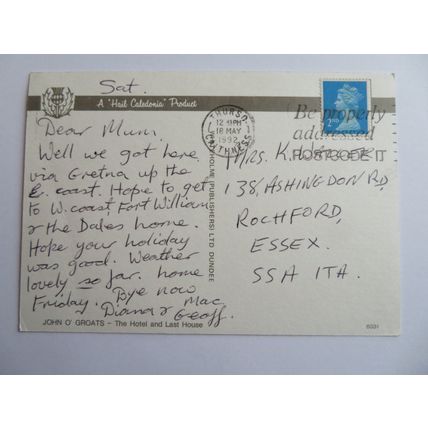 Sat.
A "Hail Caledonia" Product
Dear Mum,
Well we got here
via Gretna up the
E. coast. Hope to get
to W. coast, Fort William
& the Dales home.
Hope your holiday
was good. Weather
lovely so far. home
Friday. Bye now
Mac,
Diana & Geoff.
JOHN O' GROATS – The Hotel and Last House
(PUBLISHERS) LTD DUNDEE
THURSO
12 PM
18 MAY
1992
CAITHNESS
Be properly
addressed
POSTCODE IT
2ND
MRS. K.
138, ASHINGDON RD,
ROCHFORD,
ESSEX.
SS4 1TA.